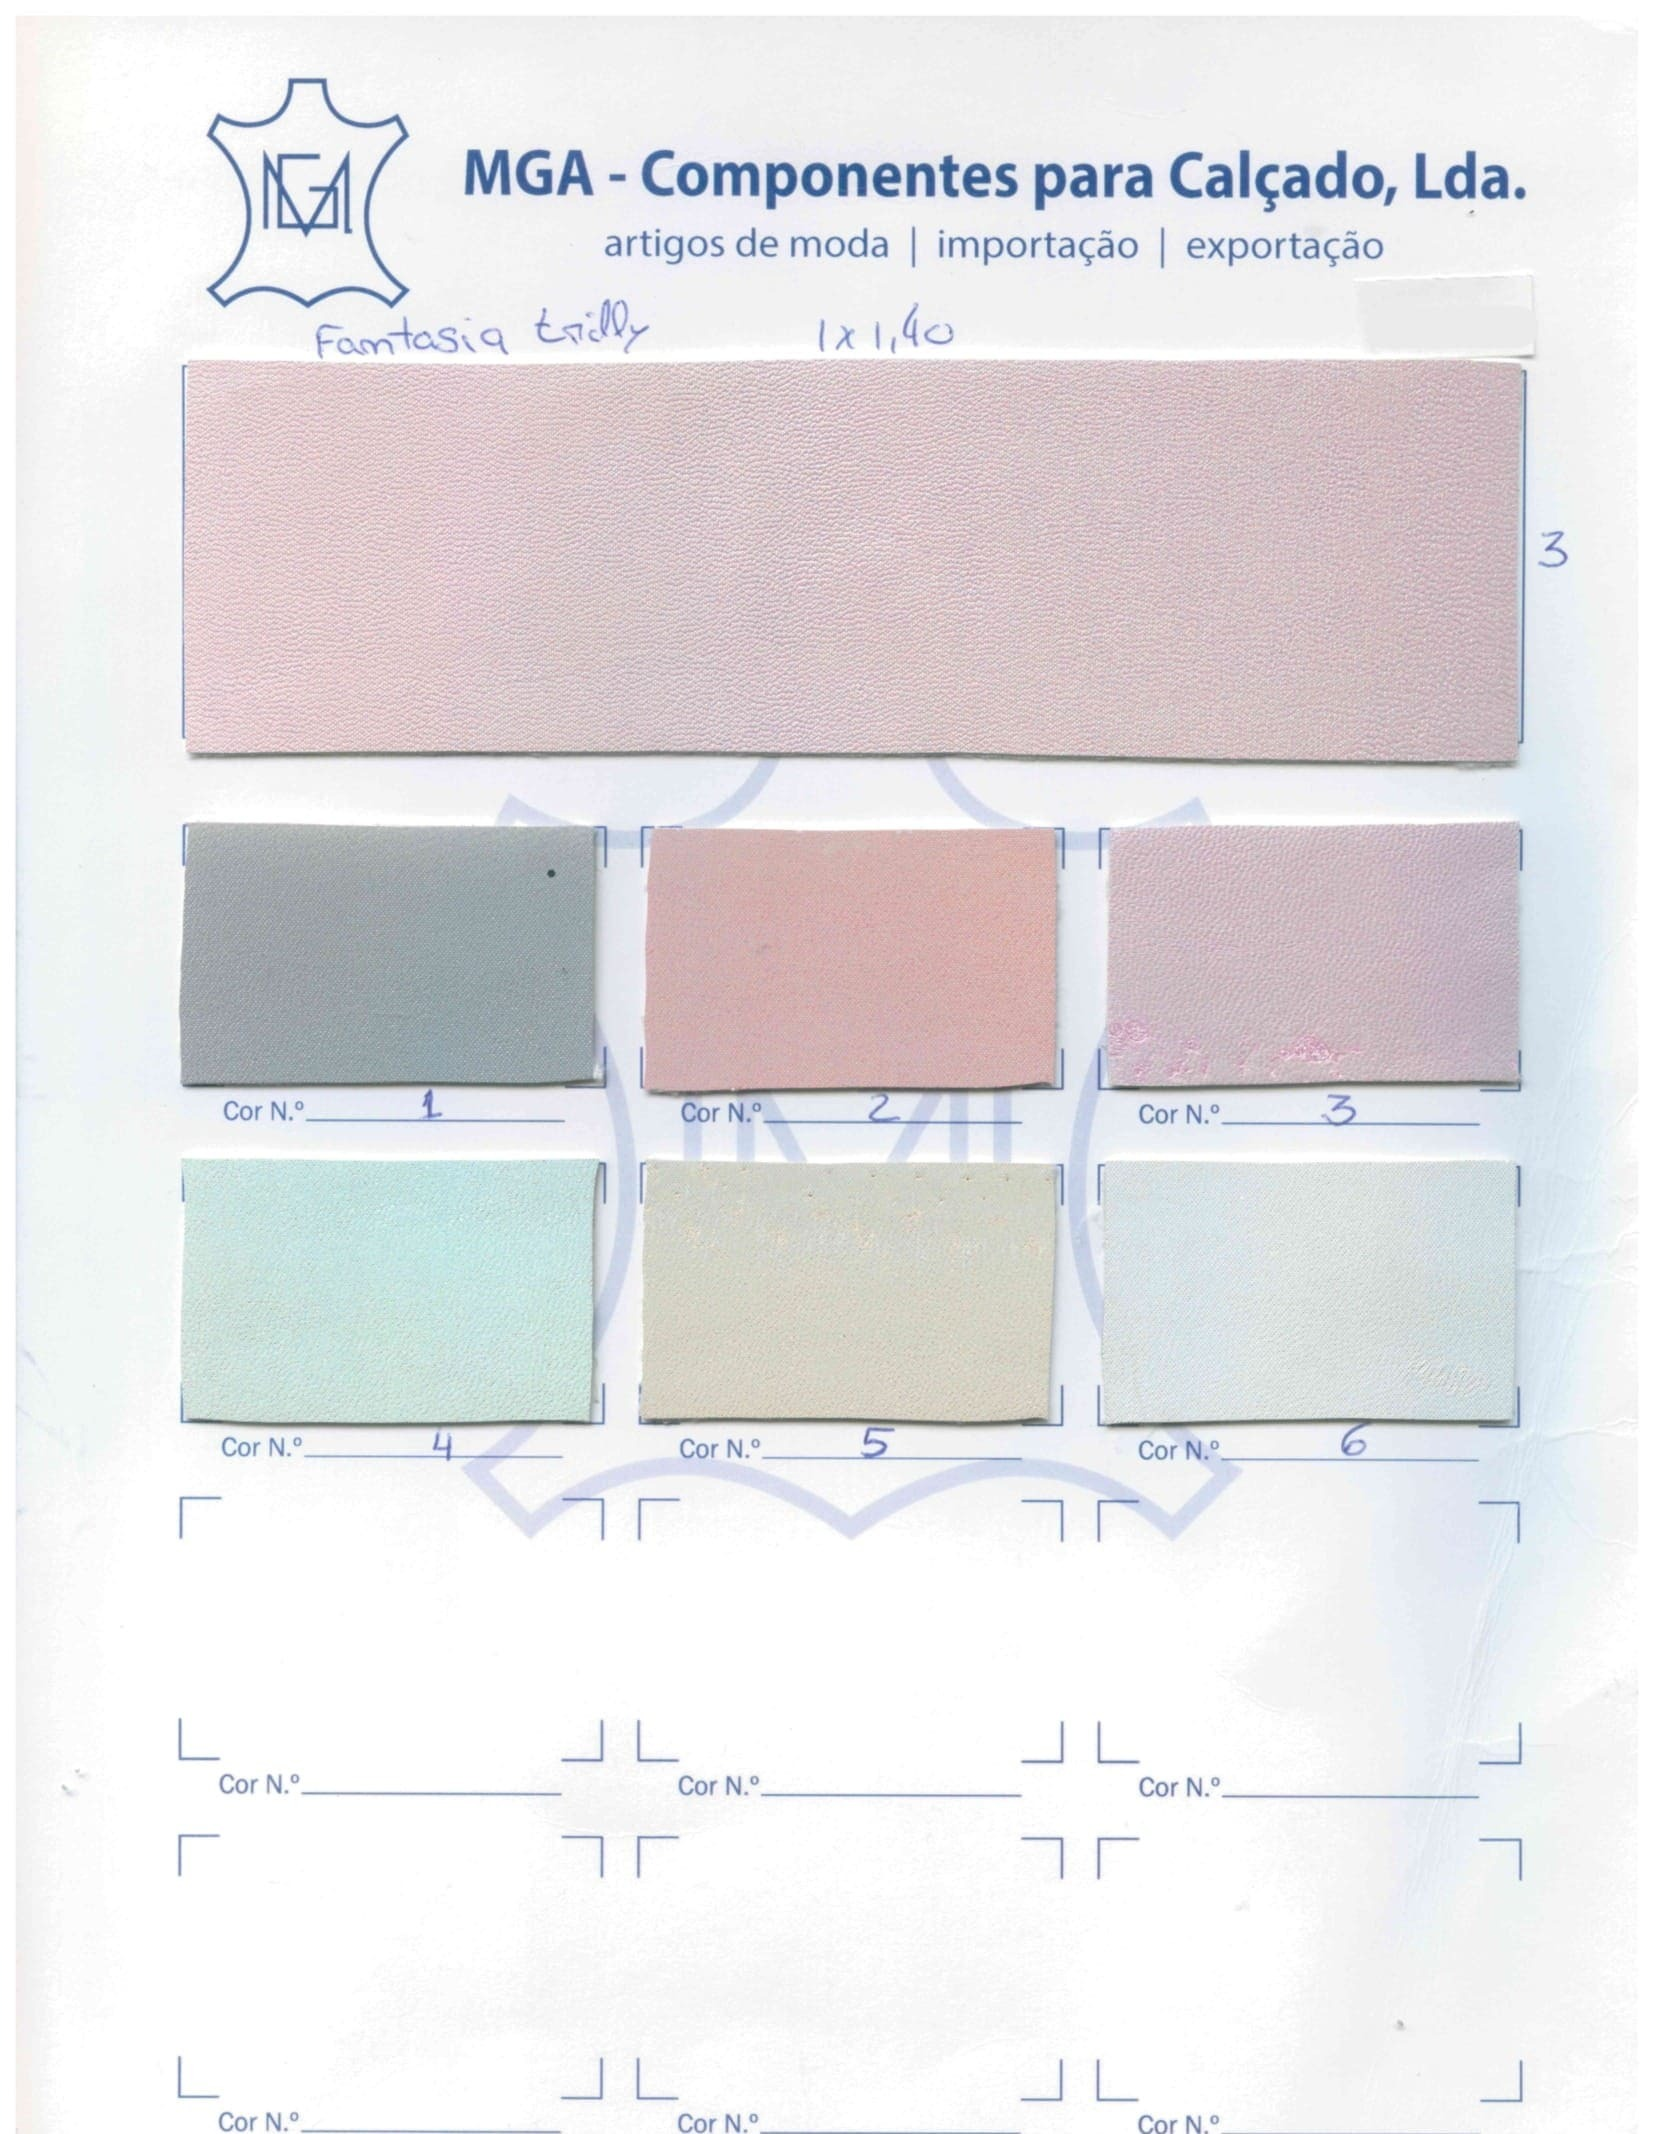 MGA
MGA - Componentes para Calçado, Lda.
artigos de moda | importação | exportação
Fantasia trilly 1x1,40
3
Cor N.º 1 Cor N.º 2 Cor N.º 3
Cor N.º 4 Cor N.º 5 Cor N.º 6
Cor N.º Cor N.º Cor N.º
Cor N.º Cor N.º Cor N.º